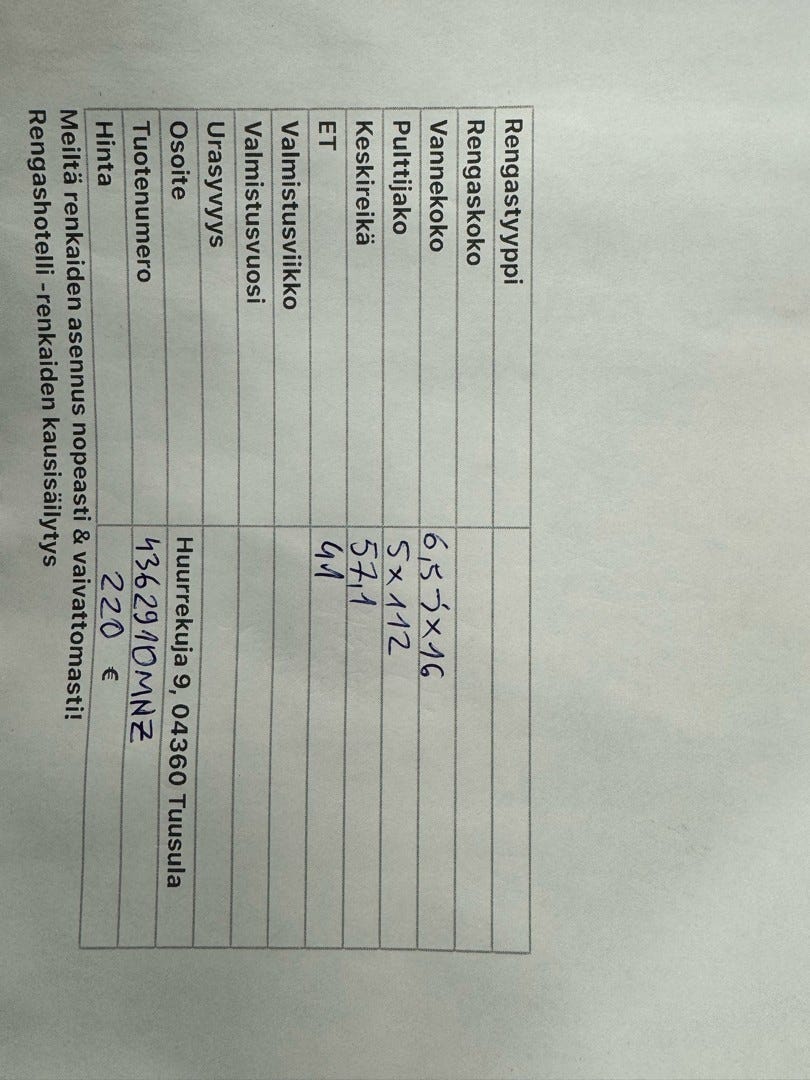 Rengastyyppi
Rengaskoko
Vannekoko 6,5Jx16
Pulttijako 5x112
Keskireikä 57,1
ET 41
Valmistusviikko
Valmistusvuosi
Urasyvyys
Osoite Huurrekuja 9, 04360 Tuusula
Tuotenumero 4362910MNZ
Hinta 220 €
Meiltä renkaiden asennus nopeasti & vaivattomasti!
Rengashotelli -renkaiden kausisäilytys